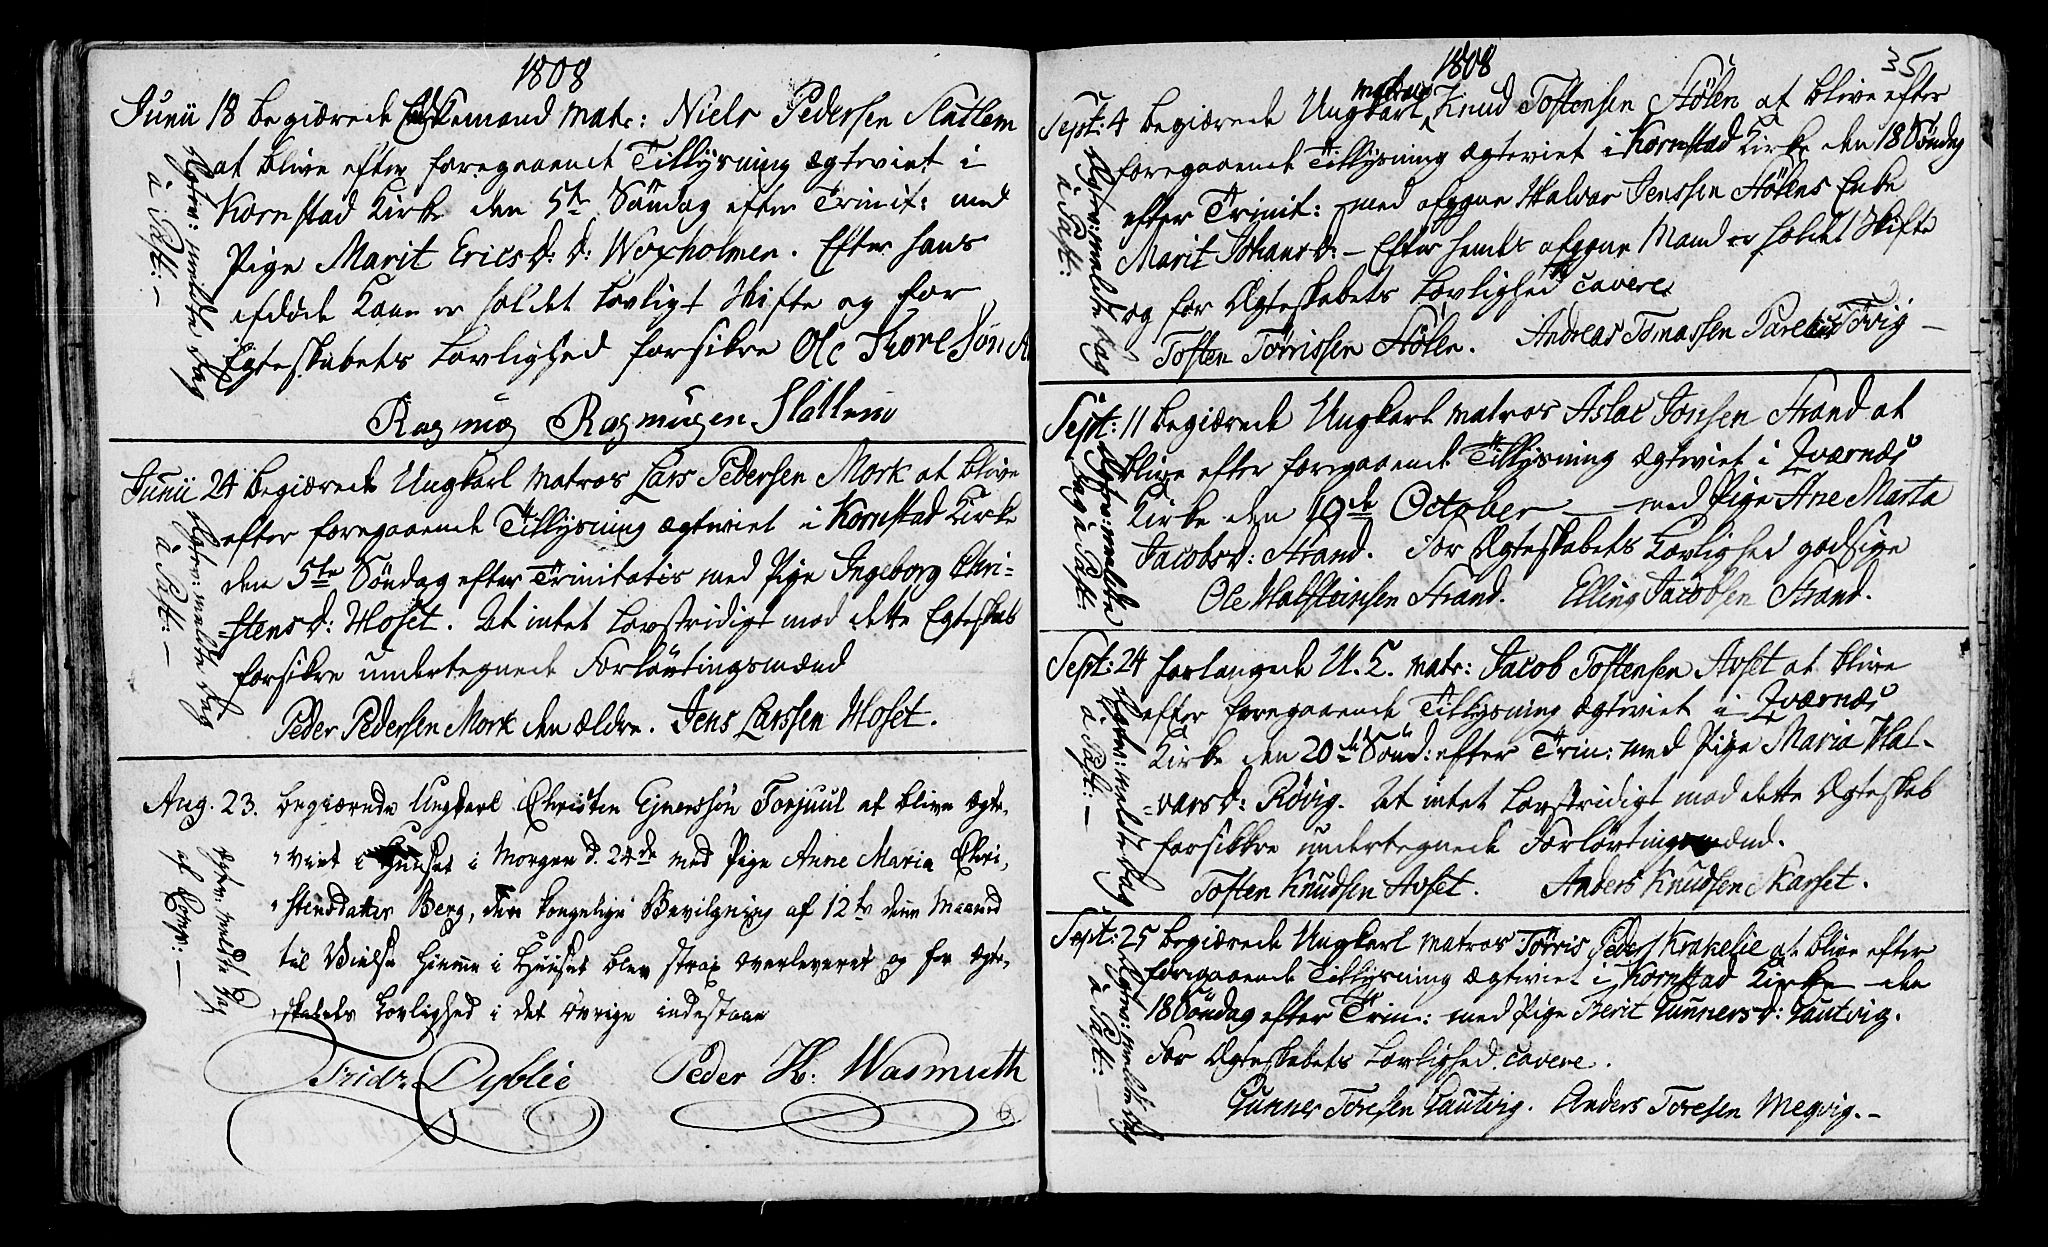 1808
Junii 18 begiærede Enkemand matr: Niels Pedersen Slatlem
at blive efter foregaaende Tillysning ægteviet i
Kornstad Kirke den 5te Søndag efter Trinit: med
Pige Marit Ericsd: d: Woxholmen. Efter hans
afdøde Kone er holdet Lovligt Skifte og for
Egteskabets Lovlighed forsikre Ole Thoresøn
Rasmus Rasmusen Slatlem
Egtev: meldte Dag
à Past: -
Junii 24 begiærede Ungkarl matros Lars Pedersen Mork at blive
efter foregaaende Tillysning ægteviet i Kornstad Kirke
den 5te Søndag efter Trinitatis med Pige Ingeborg Chri-
stensd: Hoset. At intet Lovstridigt mod dette Egteskab
forsikre undertegnede Forlovtingsmænd
Peder Pedersen Mork den ældre. Jens Larssen Hoset.
Egtev: meldte Dag
à Past: -
Aug. 23. begiærede Ungkarl Christen Ejnerssøn Torjuul at blive Ægte-
viet i Huuset i Morgen d. 24de med Pige Anne Maria Chri-
stensdatter Berg, den kongelige Bevilgning af 12te denne Maaned
til Vielse hiemme i Huuset blev strax overleveret og for Ægte-
skabets Lovlighed i det øvrige indestaae
Fridr. Dyblie Peder H: Wasmuth
Egtev: meldte Dag
1808
35
Sept: 4 begiærede Ungkarl matros Knud Tostensen Stølen at blive efter
foregaaende Tillysning ægteviet i Kornstad Kirke den 18 Søndag
efter Trinit: med afgagne Halvar Jenssen Stølens Enke
Marit Johansd: - Efter hendes afgagne Mand er holdet Skifte
og for Ægteskabets Lovlighed cavere
Tosten Tørrissen Stølen. Andreas Tomassen Tøvig -
Egtev: meldte Dag
à Past:
Sept: 11 begiærede Ungkarl matros Aslac Jonsen Strand at
blive efter foregaaende Tillysning ægteviet i Qværnæs
Kirke den 19de October med Pige Ane Marta
Jacobsd: Strand. For Ægteskabets Lovlighed godsige
Ole Halsteinsen Strand. Elling Jacobsen Strand.
Egtev: meldte
Dag à Past:
Sept: 24 forlangede U. C. matr: Jacob Tostensen Avset at blive
efter foregaaende Tillysning ægteviet i Qværnæs
Kirke den 20de Sønd: efter Trin: med Pige Maria Hal-
-varsd: Røvig. At intet Lovstridigt mod dette Ægteskab
forsikkre undertegnede Forlovtingsmænd.
Tosten Knudsen Avset. Anders Knudsen Skarset.
Egtev: meldte Dag
à Past: -
Sept: 25 begiærede Ungkarl matros Tørris Peders: Krakelie at blive efter
foregaaende Tillysning ægteviet i Kornstad Kirke den
18 Søndag efter Trin: med Pige Berit Gunnersd: Gautvig.
For Ægteskabets Lovlighed cavere.
Gunner Toresen Gautvig. Anders Toresen Megvig. -
Ægtev: meldte Dag
à Past: -